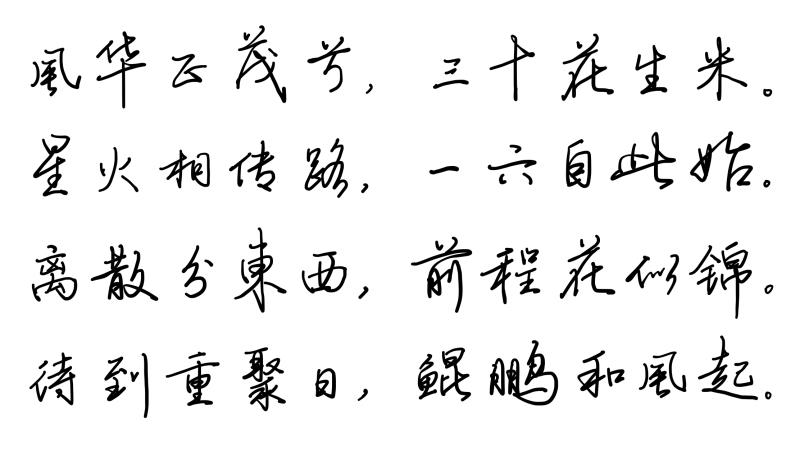 風华正茂兮，三十花生米。
星火相传路，一六自此始。
离散分東西，前程花似锦。
待到重聚日，鲲鹏和風起。